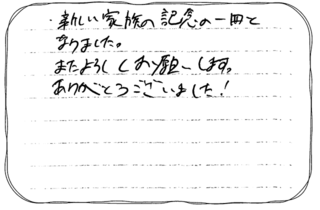 ・新しい家族の記念の一冊と
なりました。
またよろしくお願いします。
ありがとうございました！